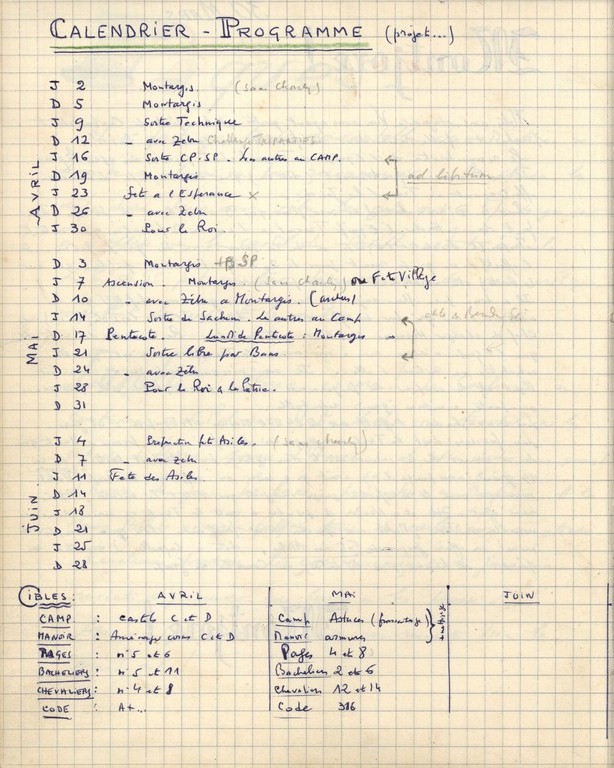 CALENDRIER - PROGRAMME (projet...)
AVRIL
J 2 Montargis. (sans Charly)
D 5 Montargis
J 9 Sortie Technique
D 12 - avec Zebu Challenge
J 16 Sortie CP.SP. Les autres au CAMP.
D 19 Montargis ad libitum
J 23 fete a l'Esperance X
D 26 - avec Zebu
J 30 Pour le Roi.
MAI
D 3 Montargis SP.
J 7 Ascension Montargis. (sans Charly) ou Fete Village
D 10 - avec Zébu a Montargis.
J 14 Sortie de Sachem. les autres au Camp
D 17 Pentecote. Lundi de Pentecote : Montargis
J 21 Sortie libre par Bans
D 24 - avec Zebu
J 28 Pour le Roi & la Patrie.
D 31
JUIN
J 4 Preparation fete Asiles. (sans Charly)
D 7 - avec Zebu
J 11 Fete des Asiles
D 14
J 18
D 21
J 25
D 28
CIBLES: AVRIL MAI JUIN
CAMP : castels C et D Camp Astuces
MANOIR : Aménager C et D Manoir armures
PAGES : n°5 et 6 Pages 4 et 8
BACHELIERS : n°5 et 11 Bacheliers 2 et 6
CHEVALIERS : n°4 et 8 Chevaliers 12 et 14
CODE : A+... Code 386